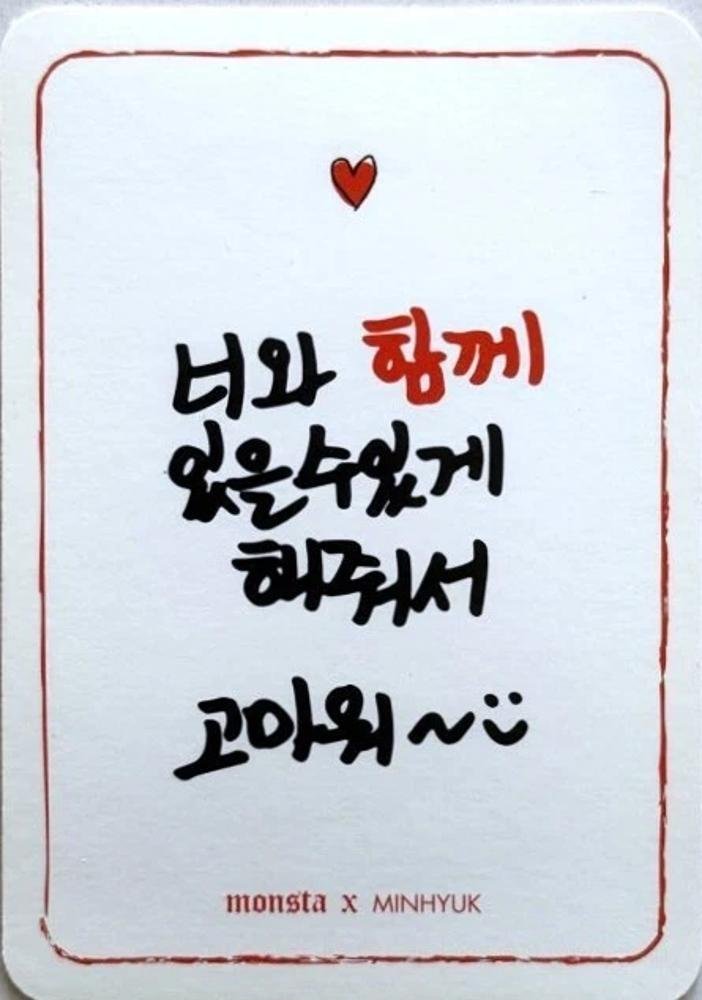 너와 함께
있을수있게
해줘서
고마워~
monsta x MINHYUK